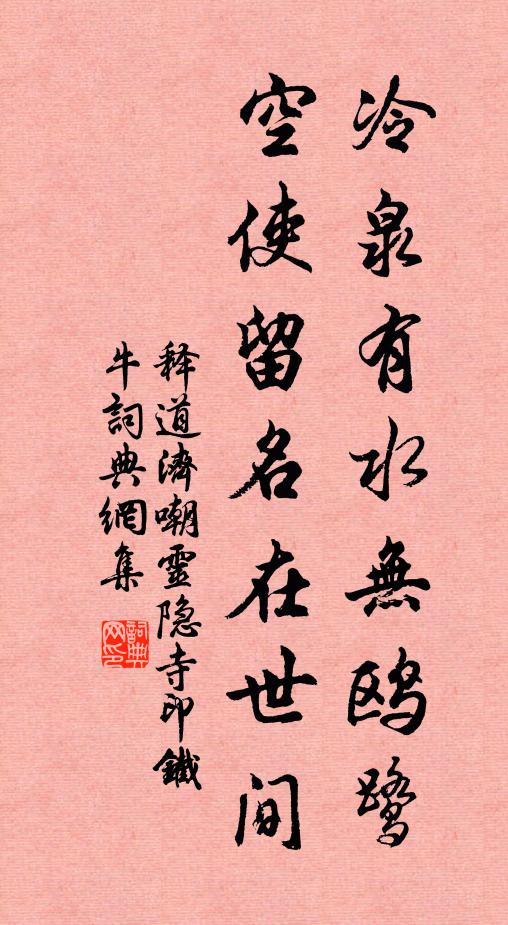 冷泉有水無鸥鹭
空使留名在世间
释道濟嘲靈隐寺印鐵
牛詞典網集
詞典
网印